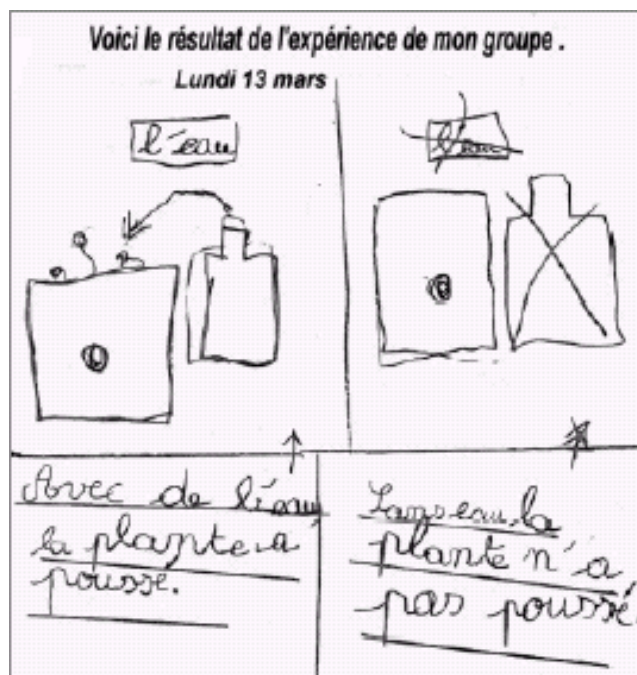 Voici le résultat de l'expérience de mon groupe .
Lundi 13 mars
l'éeau
l'eau
Avec de l'éeau
la plante a
poussé.
Sans eau la
plante n'a
pas poussé.